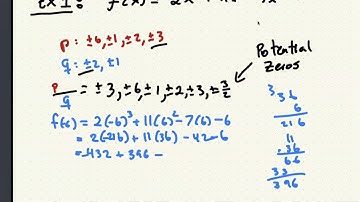 Ex 1:
p: ±6, ±1, ±2, ±3
q: ±2, ±1
p/q = ±3, ±6, ±1, ±2, ±3, ±3/2
Potential
Zeros
f(6) = 2(-6)³ + 11(6)² - 7(6) - 6
= 2(-216) + 11(36) - 42 - 6
= -432 + 396 -
3
36
6
216
11
.36
66
33
396